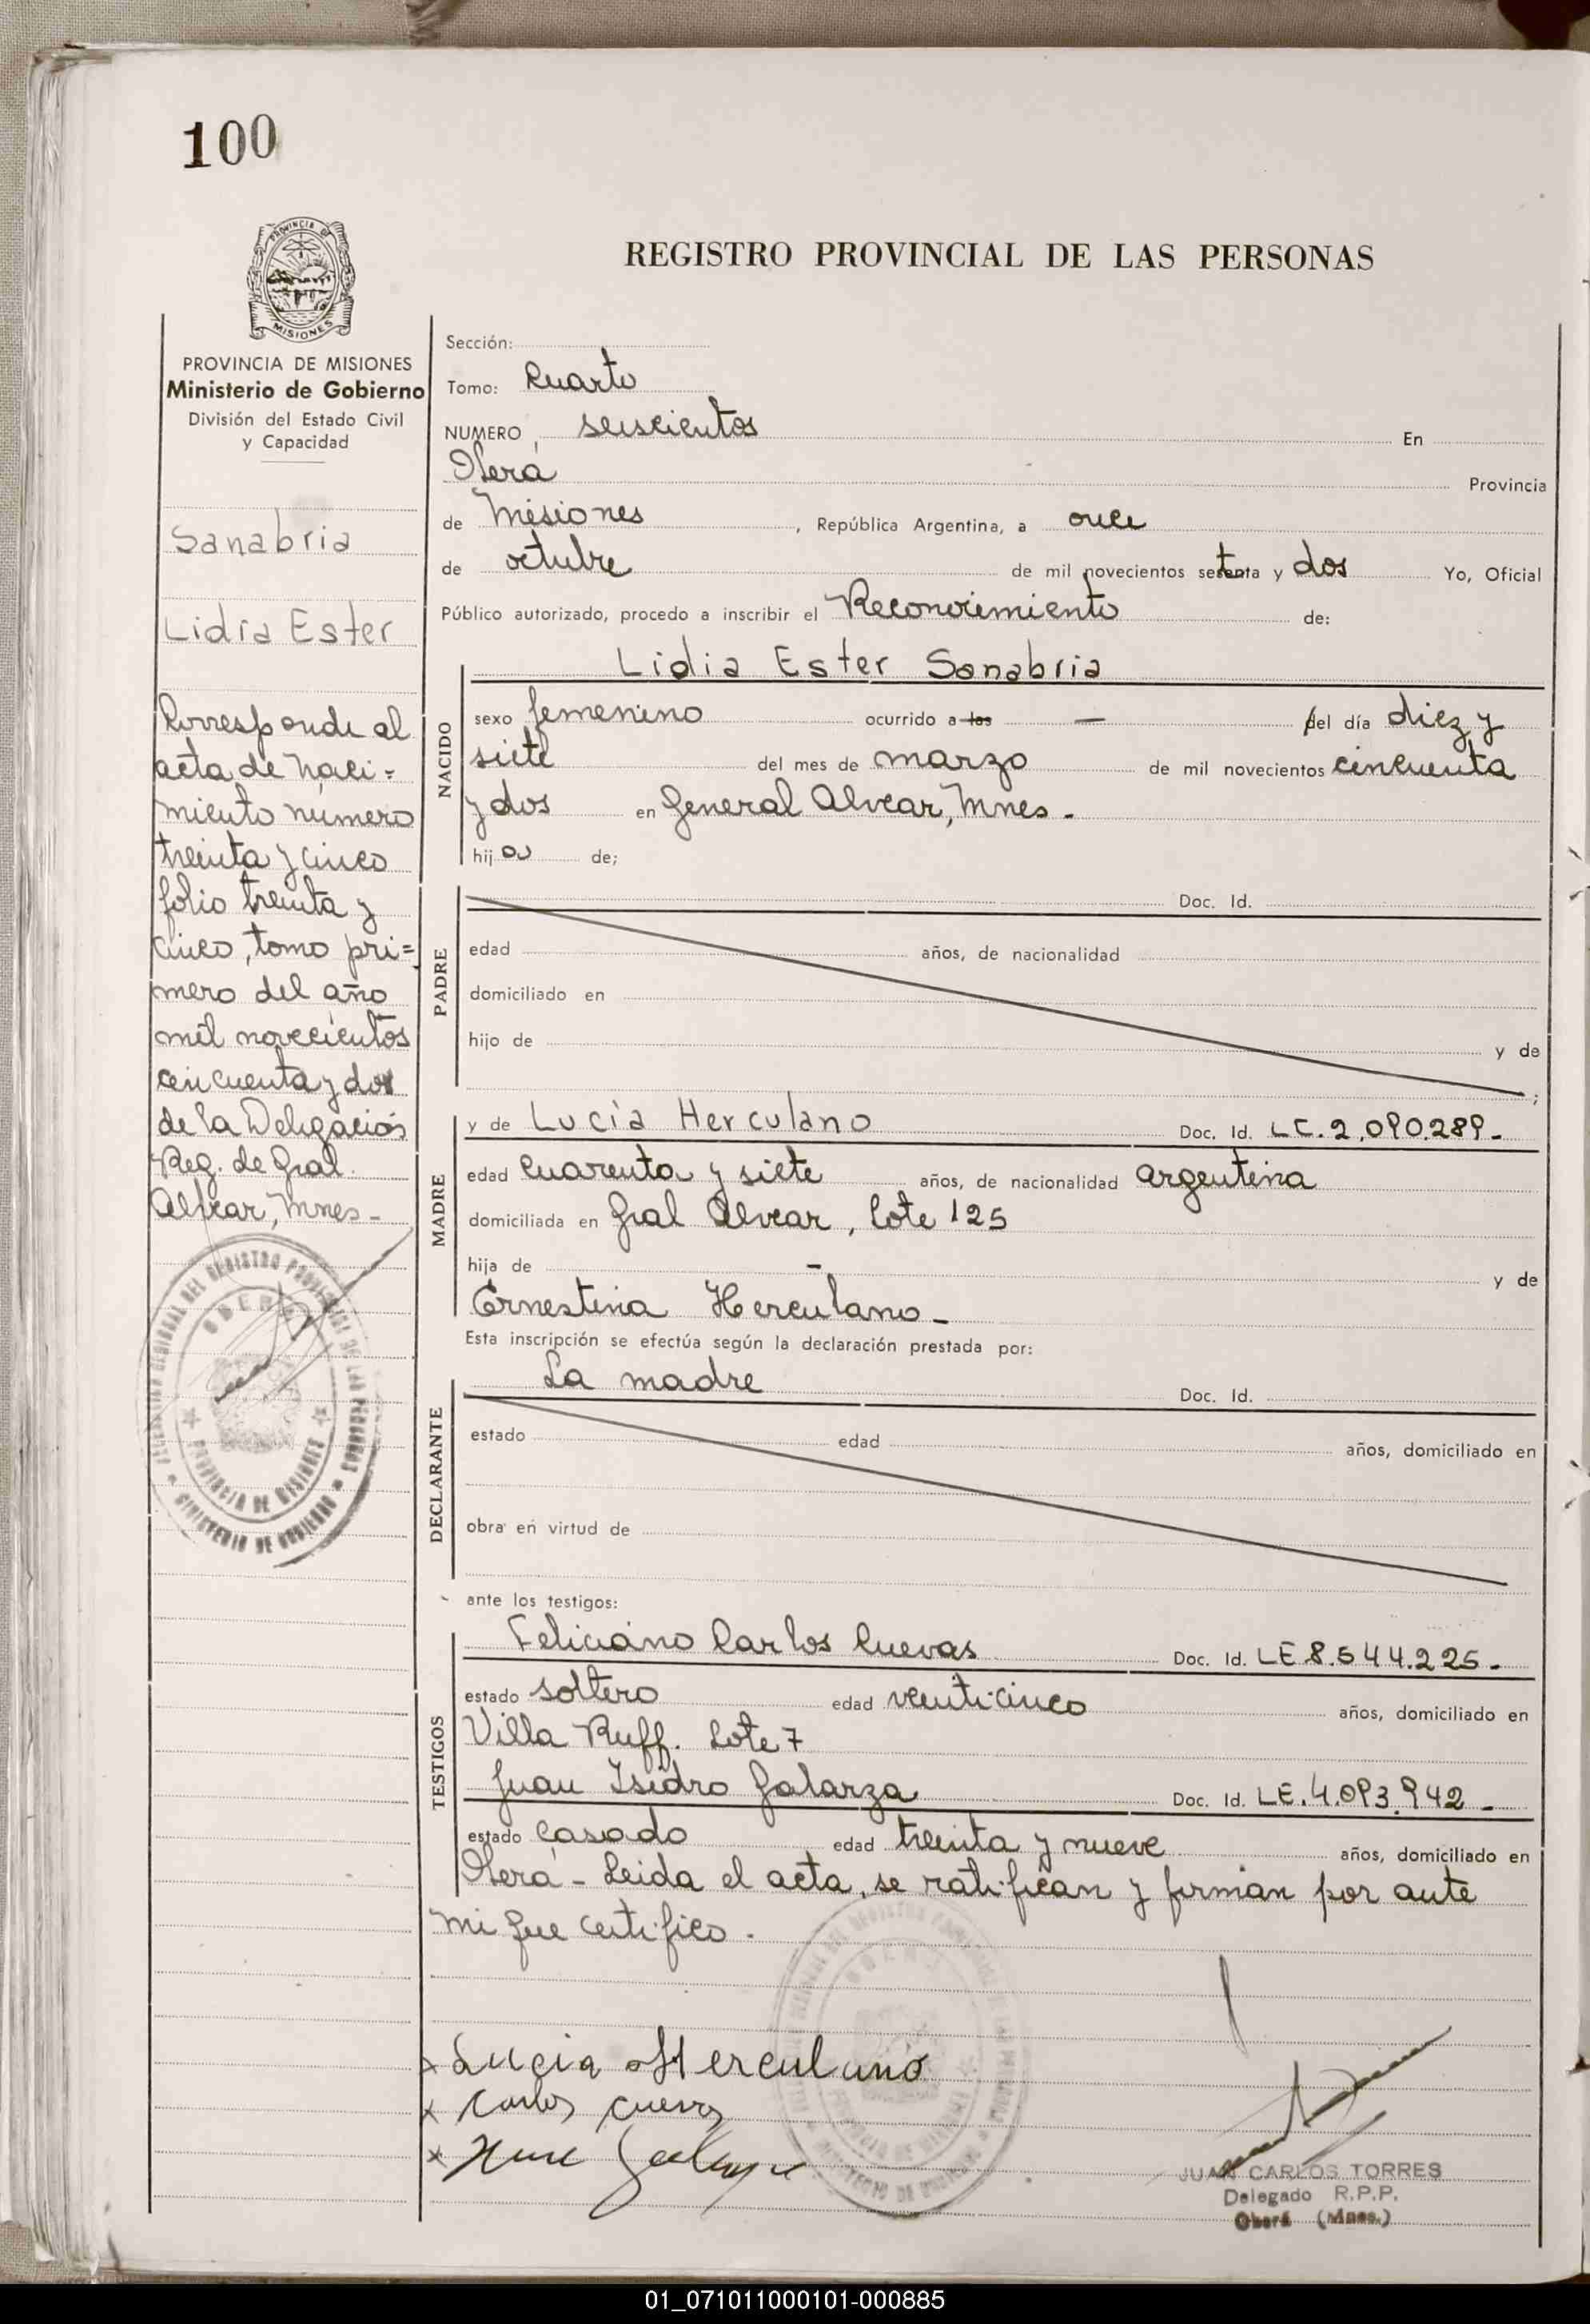 100
PROVINCIA DE
MISIONES
REGISTRO PROVINCIAL DE LAS PERSONAS
PROVINCIA DE MISIONES
Ministerio de Gobierno
División del Estado Civil
y Capacidad
Sanabria
Lidia Ester
Corresponde al
acta de naci=
miento número
treinta y cinco
folio treinta y
cinco, tomo pri=
mero del año
mil novecientos
cincuenta y dos
de la Delegación
Reg. de Gral.
Alvear, Mnes -
Sección:
Tomo: Cuarto
NUMERO, seiscientos En
Oberá Provincia
de Misiones, República Argentina, a once
de octubre de mil novecientos setenta y dos Yo, Oficial
Público autorizado, procedo a inscribir el Reconocimiento de:
Lidia Ester Sanabria
NACIDO
sexo femenino ocurrido a las — del día diez y
siete del mes de marzo de mil novecientos cincuenta
y dos en General Alvear, Mnes -
hija de;
PADRE
Doc. Id.
edad años, de nacionalidad
domiciliado en
hijo de y de
;
MADRE
y de Lucía Herculano Doc. Id. LC. 2.090.289-
edad cuarenta y siete años, de nacionalidad argentina
domiciliada en Gral Alvear, lote 125
hija de - y de
Ernestina Herculano -
Esta inscripción se efectúa según la declaración prestada por:
DECLARANTE
La madre Doc. Id.
estado edad años, domiciliado en
obra en virtud de
ante los testigos:
TESTIGOS
Feliciano Carlos Cuevas Doc. Id. LE 8.544.225-
estado soltero edad veinticinco años, domiciliado en
Villa Ruff. Lote 7
Juan Isidro Galarza Doc. Id. LE. 4.093.942-
estado casado edad treinta y nueve años, domiciliado en
Oberá - Leida el acta, se ratifican y firman por ante
mi que certifico.
x Lucia Herculano
x Carlos Cuevas
JUAN CARLOS TORRES
Delegado R.P.P.
Oberá (Mnes.)
01_071011000101-000885